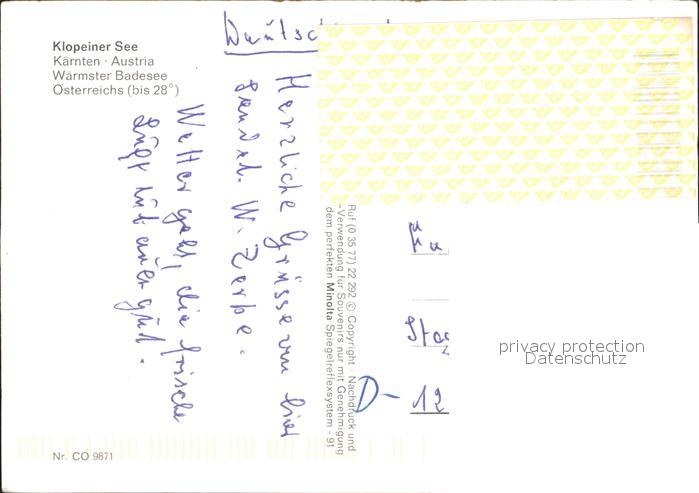 Klopeiner See
Kärnten · Austria
Wärmster Badesee
Österreichs (bis 28°)
Herzliche Grüsse von hier
sendet W. Zerbe.
Wetter geht, die frische
Luft tut auch gut.
Ruf (0 35 77) 22 292 © Copyright · Nachdruck und
-Verwendung für Souvenirs nur mit Genehmigung
dem perfekten Minolta Spiegelreflexsystem - 91
D- 12
privacy protection
Datenschutz
Nr. CO 9871